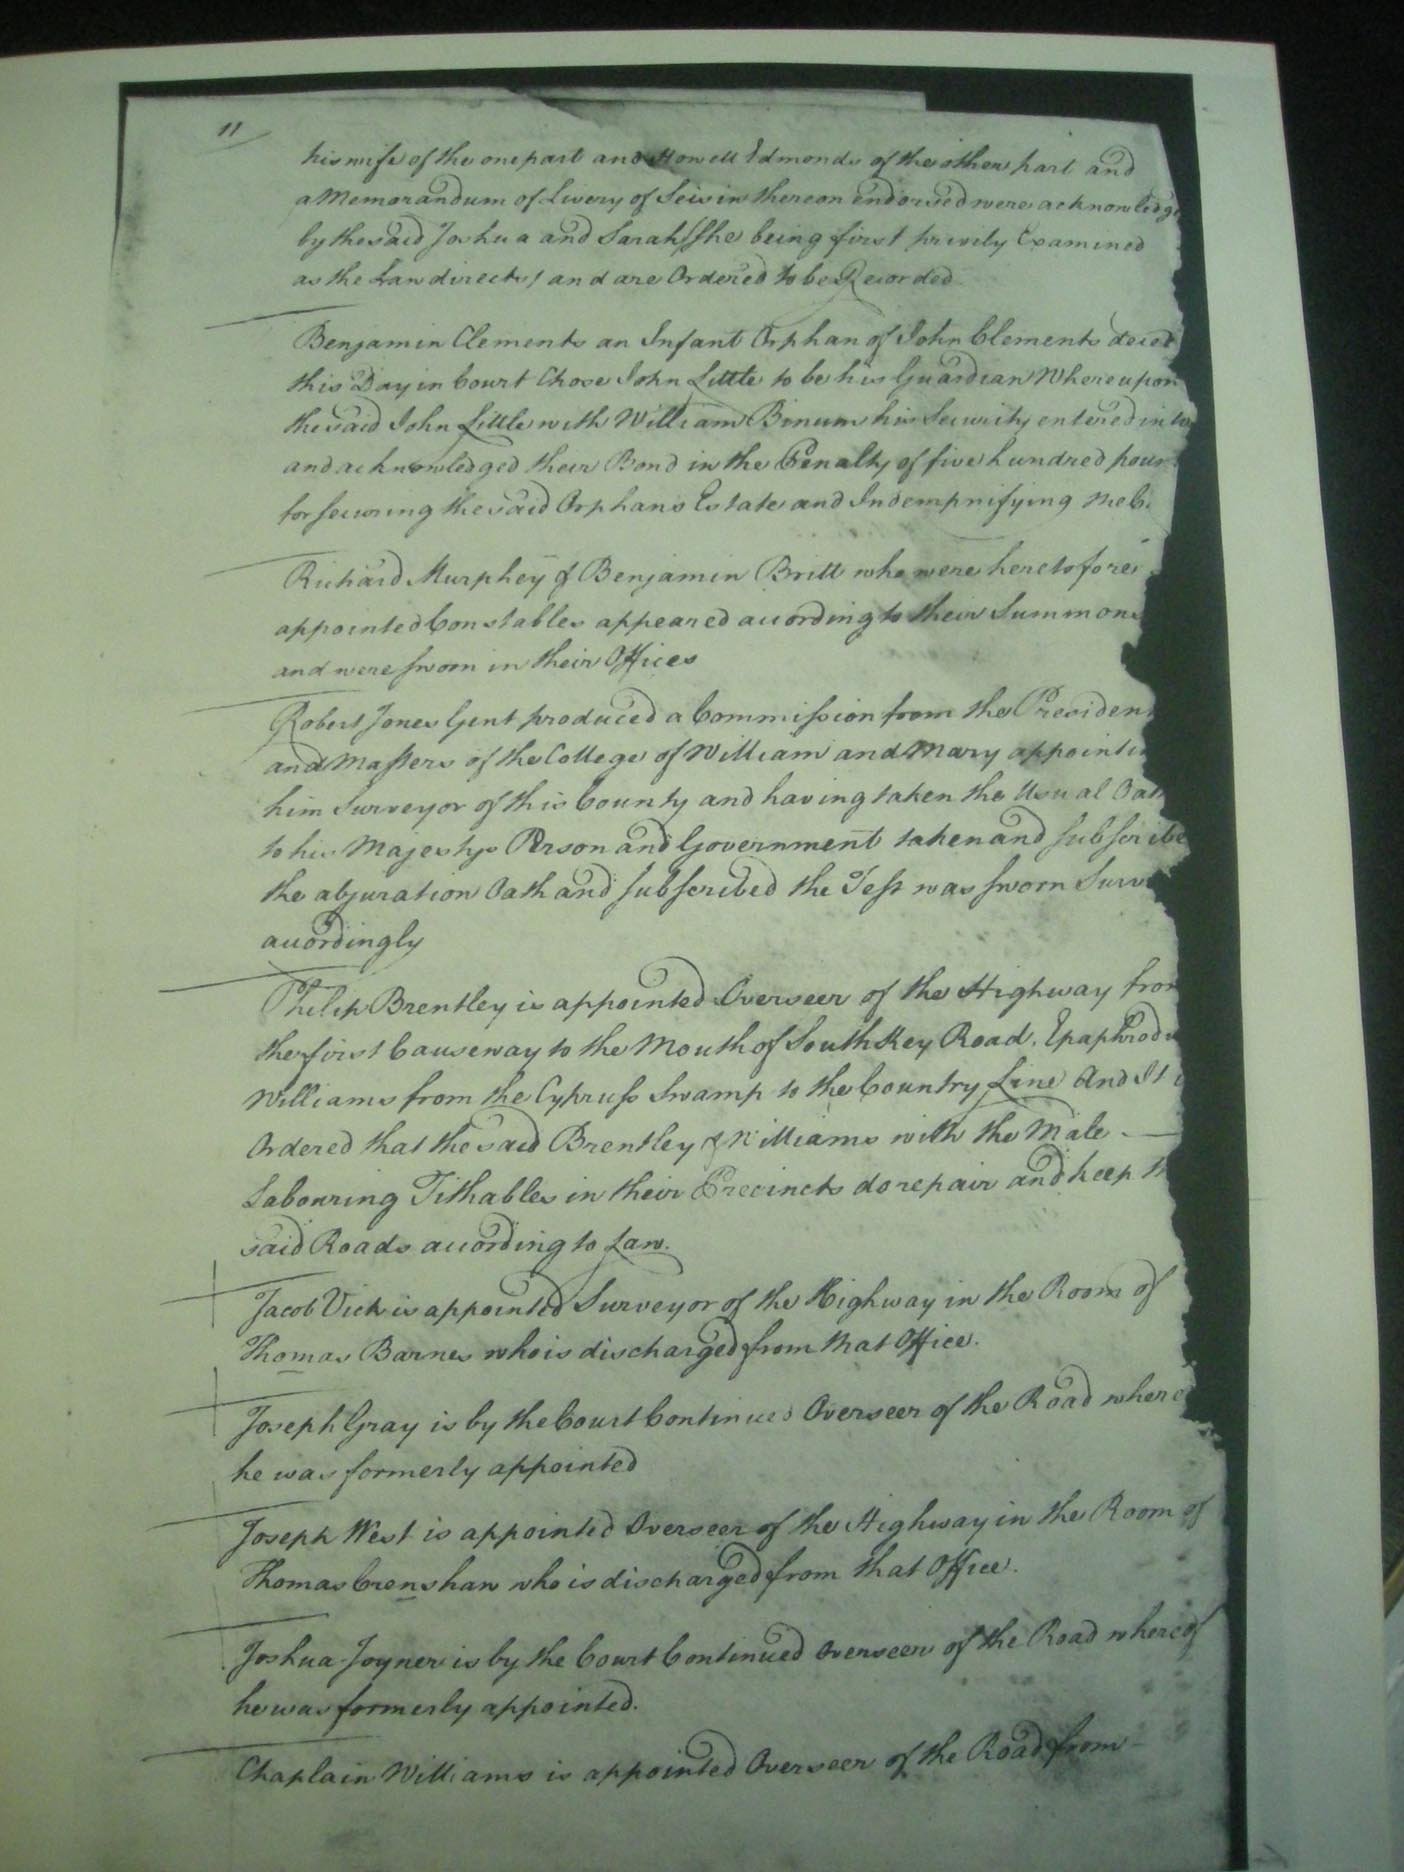 11
his wife of the one part and Howell Edmonds of the other part and
a Memorandum of Livery of Seisin thereon endorsed were acknowledg
by the said Joshua and Sarah (she being first privily Examined
as the Law directs) and are Ordered to be Recorded
Benjamin Clements an Infant Orphan of John Clements deced
this Day in Court Chose John Little to be his Guardian Whereupon
the said John Little with William Binum his Security entered into
and acknowledged their Bond in the Penalty of five hundred poun
for securing the said Orphans Estate and Indempnifying the C
Richard Murphey & Benjamin Britt who were heretofore
appointed Constables appeared according to their Summons
and were sworn in their Offices
Robert Jones Gent produced a Commission from the President
and Masters of the College of William and Mary appointin
him Surveyor of this County and having taken the Usual Oath
to his Majestys Person and Government taken and subscribe
the abjuration Oath and subscribed the Test was sworn Surve
accordingly
Philip Brentley is appointed Overseer of the Highway from
the first Causeway to the Mouth of South Key Road, Epaphrodi
Williams from the Cypruss Swamp to the Country Line And It i
Ordered that the said Brentley & Williams with the Male
Labouring Tithables in their Precincts do repair and keep th
said Roads according to Law.
Jacob Vick is appointed Surveyor of the Highway in the Room of
Thomas Barnes who is discharged from that Office.
Joseph Gray is by the Court Continued Overseer of the Road whereo
he was formerly appointed
Joseph West is appointed Overseer of the Highway in the Room of
Thomas Crenshaw who is discharged from that Office.
Joshua Joyner is by the Court Continued Overseer of the Road whereof
he was formerly appointed.
Chaplain Williams is appointed Overseer of the Road from